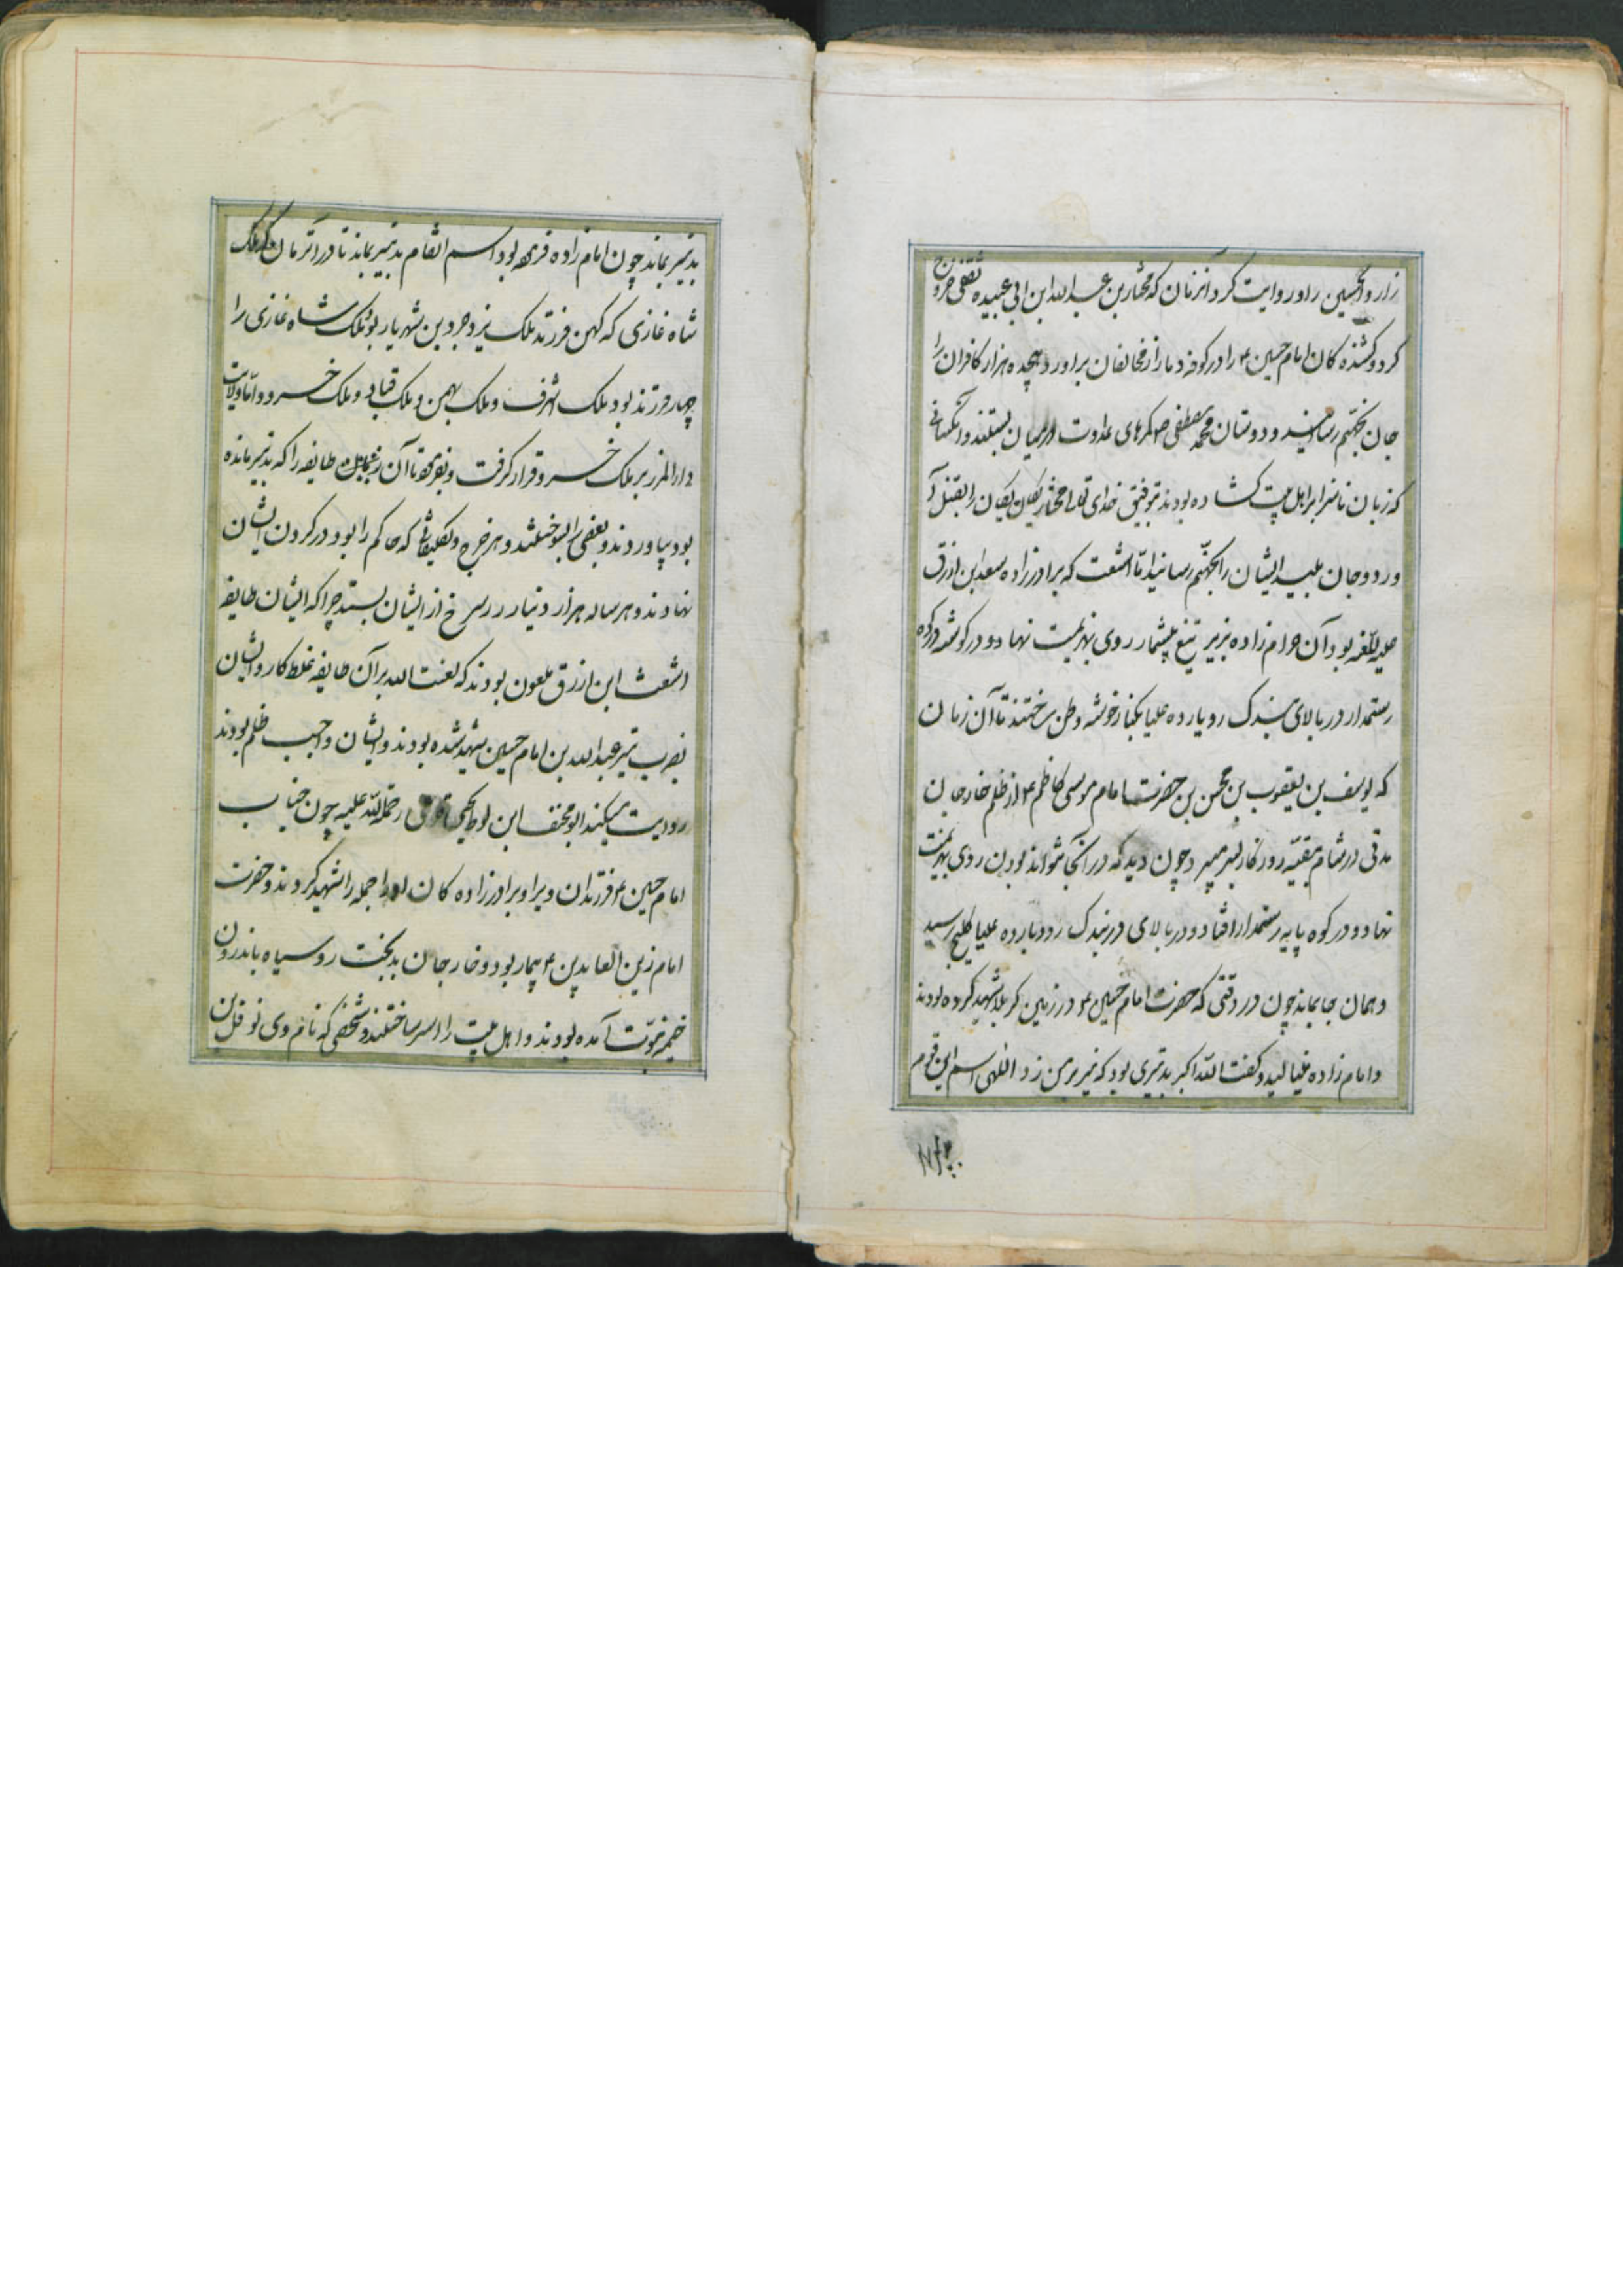 زار و الحسین راور روایت کرد آنزمان که مختار بن عبدالله ابن ابی عبیده ثقفی خروج
کرد و کشنده کان امام حسین ع را در کوفه دمار از مخالفان براورد هیجده هزار کافران را
جان بجهنم رسانید و دوستان محمد مصطفی ص کمرهای عداوت در میان بستند و آنکسانی
که زبان ناسزا بر اهل بیت کشاده بودند بتوفیق خدای تعالی مختار یکان یکان را بقتل آ
ورد و جان پلید ایشان را بجهنّم رسانید امّا اشعث که برادرزاده سعد ابن ازرق
علیه اللّعنه بود آن حرام زاده بزیر تیغ بیشمار روی بهزیمت نهاد و در کوشه در کوه
رستمدار در بالای بندک رویارده علیا خوشه وطن ساختند تا آن زمان
که یوسف بن یعقوب بن محسن بن حضرت امام موسی کاظم ع از ظلم خارجان
مدتی در شام بتقیّه روزکار بسر میبرد چون دید که در آنجا نتواند بودن روی بهزیمت
نهاد و در کوه پایه رستمدار افتاد و در بالای دربندک رودبارده علیا رسید
و همان بجا بماند چون در وقتی که حضرت امام حسین ع در زمین کربلا شهید کرده بودند
و امام زاده بنالید و کفت اللّه اکبر بدتیری بود که تیر بر من زد الهی اسم این قوم
بدتیر بماند چون امام زاده فرمود اسم انقام بدتیر بماند تا در آنزمان که ملک
شاه غازی که کهن فرزند ملک یزدجرد بن شهریار بود ملک شاه غازی را
چهار فرزند بود ملک اشرف و ملک بهمن و ملک قباد و ملک خسرو و امّا ولایت
دارالمرز بر ملک خسرو قرار کرفت و بفرمود تا آن طایفه را که بدتیر مانده
بود بیاوردند و بعضی را بسوختند و هر خرج و تکلیفاتی که حاکم را بود در کردن ایشان
نهادند و هر ساله هزار دنیار زر سرخ از ایشان بستد چرا که ایشان طایفه
اشعث ابن ازرق ملعون بودند که لعنت الله بر آن طایفه غلط کار و ایشان
بضرب تیر عبدالله بن امام حسین شهید شده بودند و ایشان واجب ظلم بودند
روایت میکند ابو مخنف ابن لوط یحیی رحمة اللّه علیه چون جناب
امام حسین ع فرزندان و برا و برادرزاده کان او را جمله را شهید کردند و حضرت
امام زین العابدین ع بیمار بود و خارجان بدبخت رو سیاه باندرون
خیمه نبوّت آمده بودند و اهل بیت را اسر ساختند و شخصی که نام وی نوفل بن